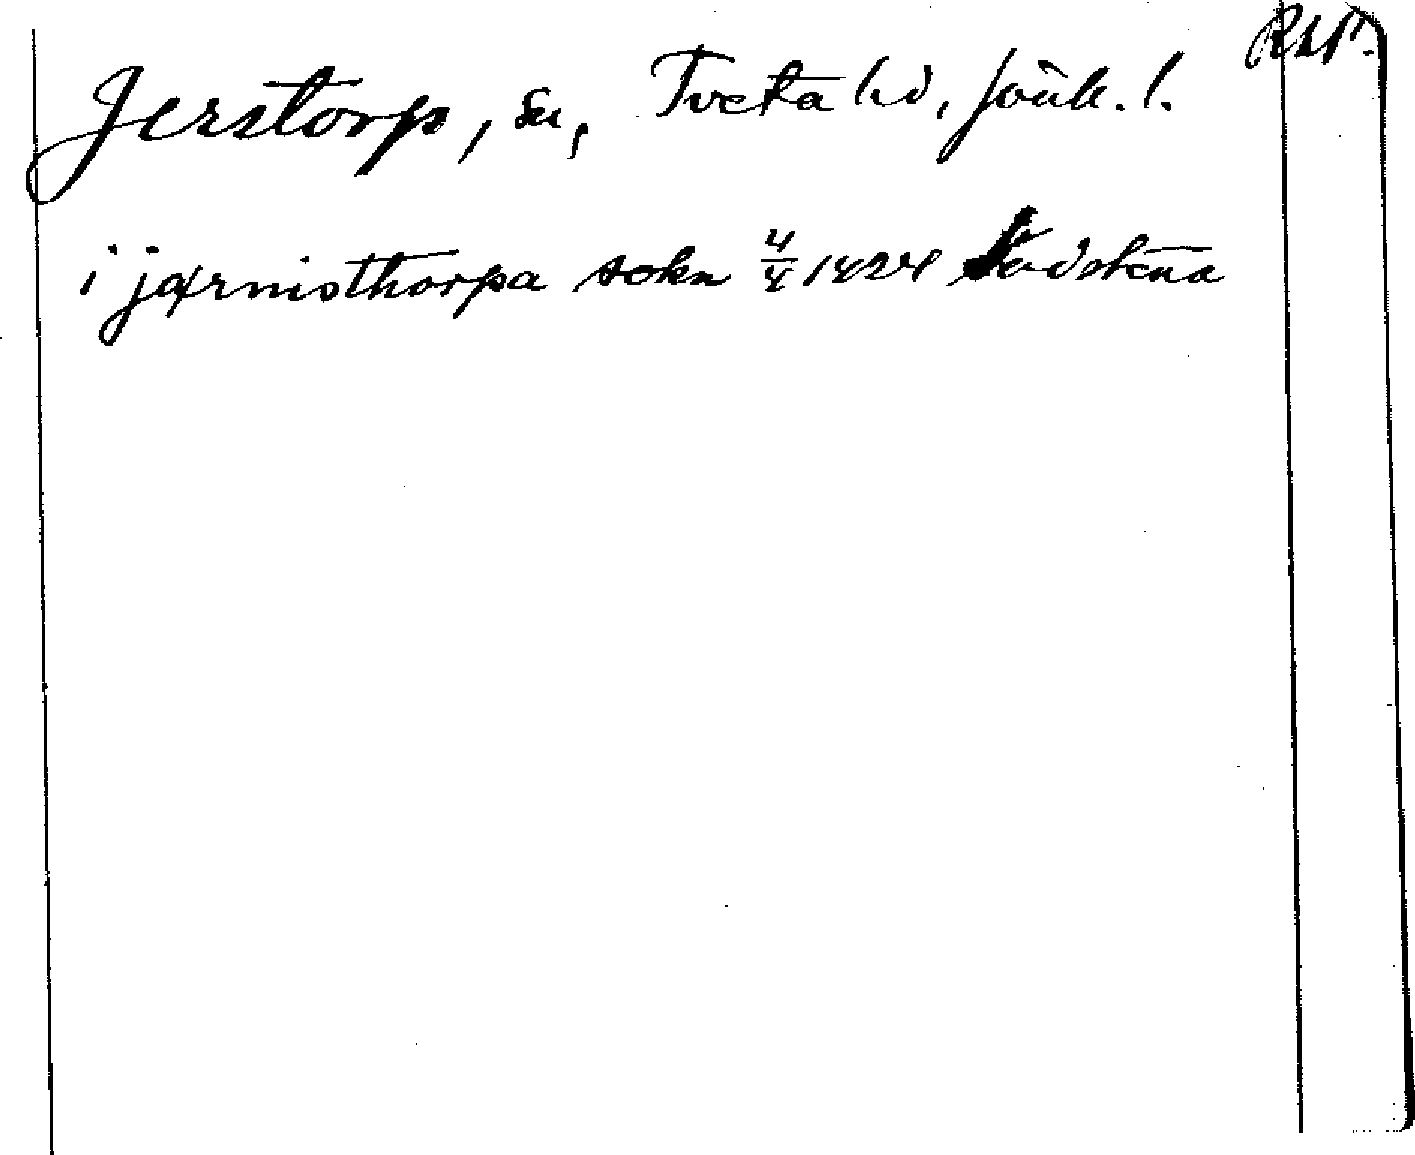 RAP.
Jerstorp, sn, Tveta hd, Jönk. l.
i jærnisthorpa sokn 4/4 1424 Vadstena